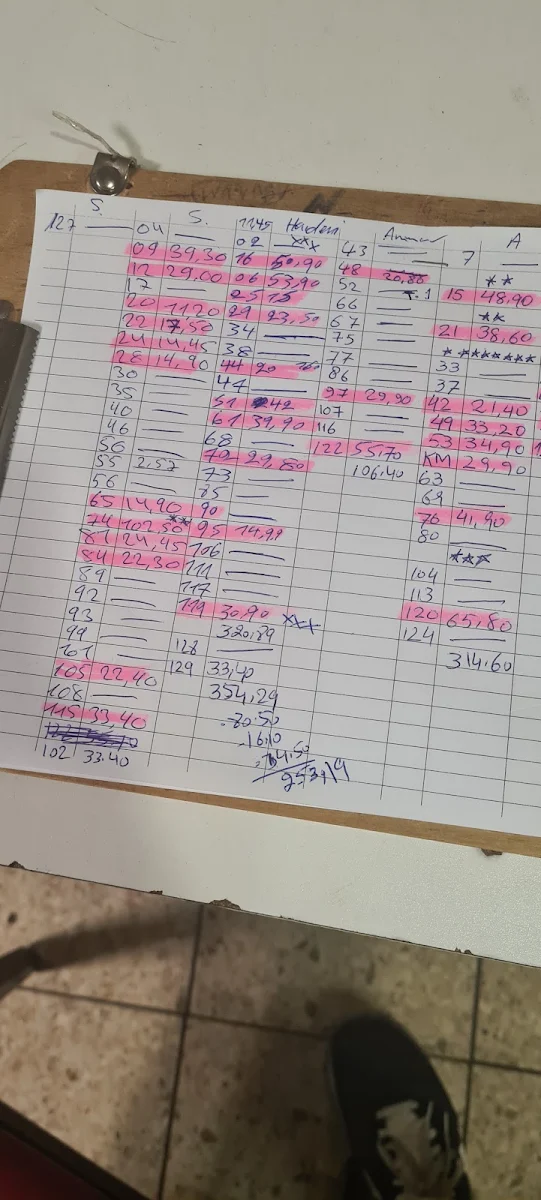 S.
127
04 S.
09 39,30
12 29,00
17
20 11,20
22 17,50
24 14,45
28 14,90
30
35
40
46
50
55 2,57
56
65 14,90
74 102,50 **
81 24,45
84 22,30
89
92
93
99
101
105 22,40
108
115 33,40
102 33.40
1145
02 xxx
16 50,90
06 53,90
25 15
29 23,50
34
38
44 20
44
51 42
61 39,90
68
70 29,80
73
85
90
95 14,99
106
111
117
119 30,90 xxx
320,89
128
129 33,40
354,29
-20.50
-16,10
253,19
43
48 20,80
52
66
67
75
77
86
97 29,90
107
116
122 55,70
106.40
7 A
**
15 48,90
**
21 38,60
* *******
33
37
42 21,40
49 33,20
53 34,90
KM 29,90
63
69
76 41,90
80
***
104
113
120 65,80
124
314.60